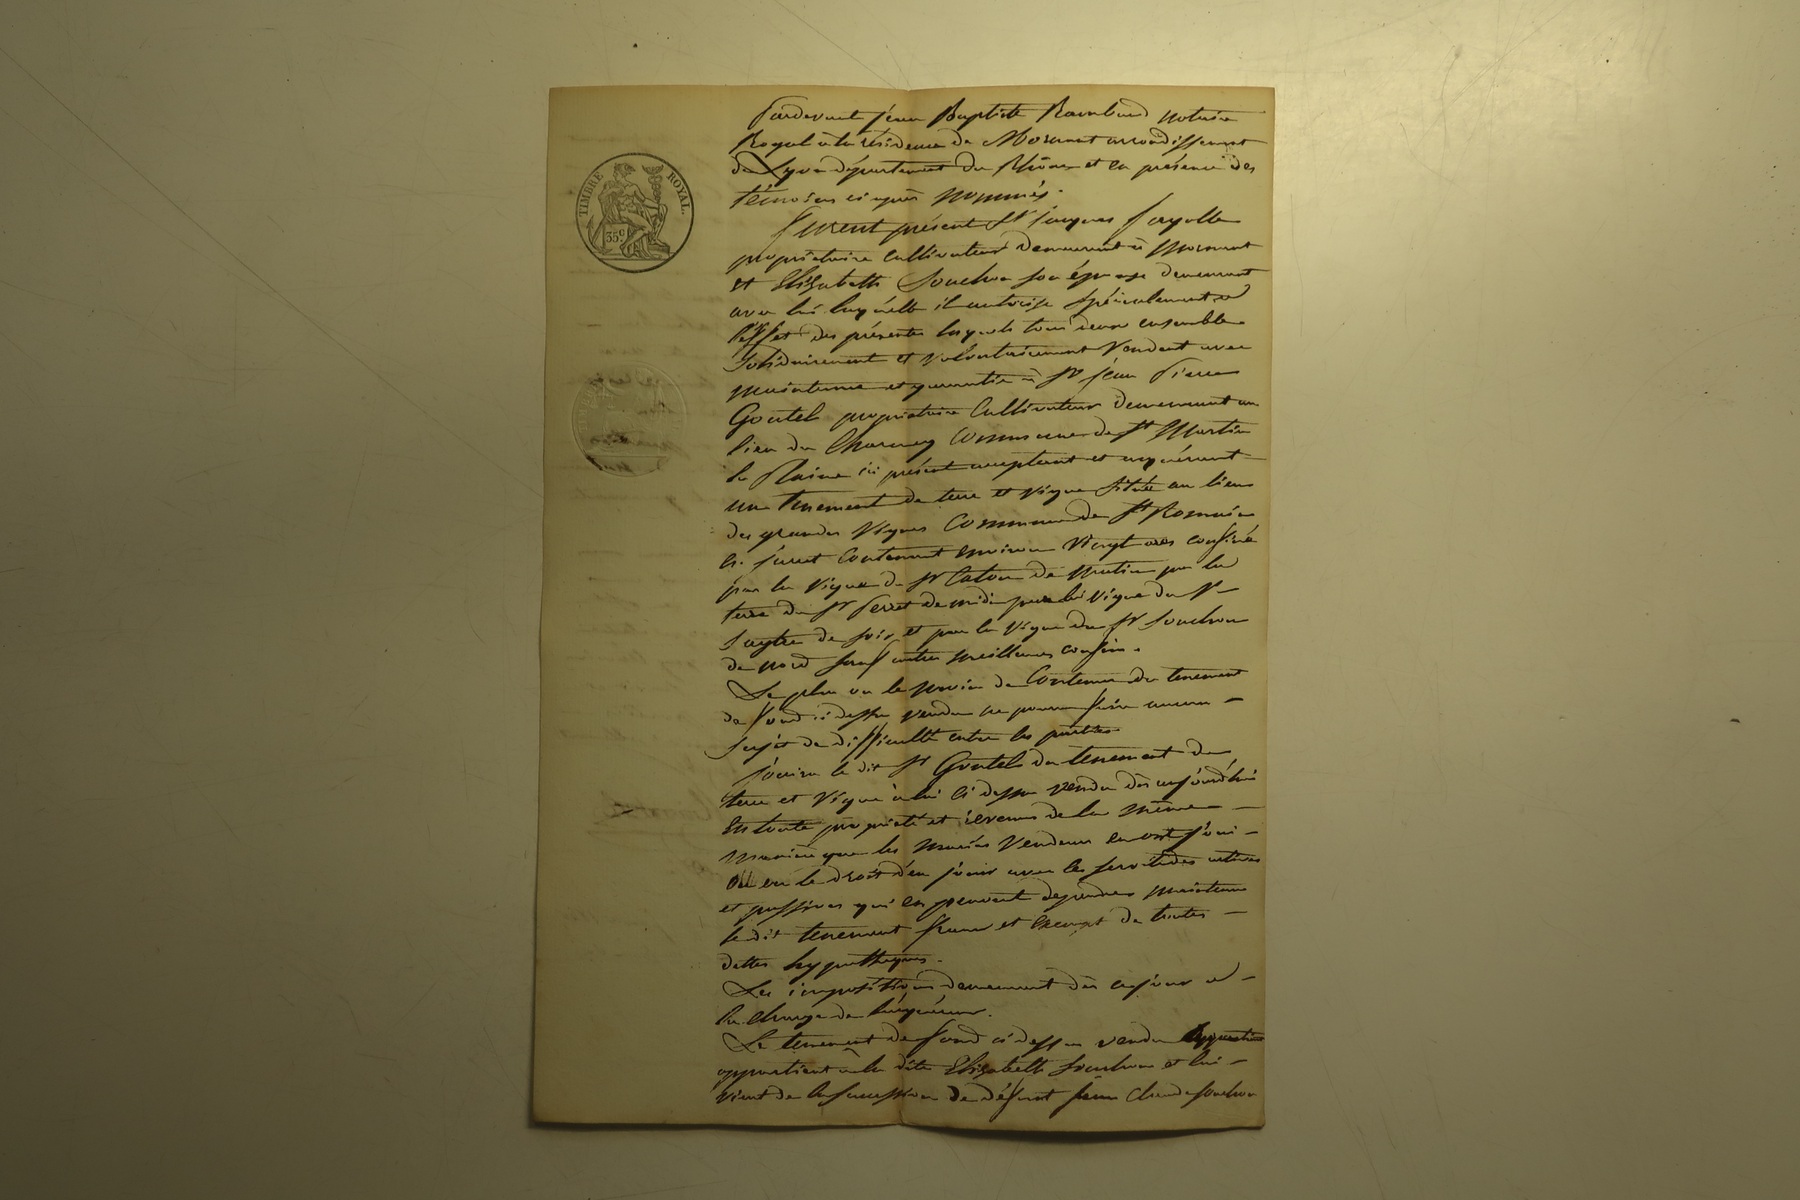 TIMBRE ROYAL.
35c
Pardevant Jean Baptiste Raimbaud notaire
Royal à la résidence de Mornant arrondissement
de Lyon département du Rhône et en présence des
témoins ci après nommés.
Furent présent Sr Jacques Fayolle
propriétaire Cultivateur demeurant à Mornant
et Elizabeth Souchon son épouse demeurant
avec lui laquelle il autorise spécialement à
l'effet des présentes lesquels tous deux ensemble
Solidairement et volontairement Vendent avec
maintenue et garantie à Sr Jean Pierre
Goutel propriétaire Cultivateur demeurant au
lieu du Commune de St Martin
la Plaine ici présent acceptant et acquérant
un tenement de terre et Vigne Située au lieu
des grandes Vignes Commune de St Romain
en Jarret Contenant environ Vingt ares confiné
par la Vigne du Sr de matin par la
terre du Sr Perret de midi par la Vigne du Sr
de soir et par la Vigne du Sr Souchon
de nord sauf autres meilleurs confins.
Le plus ou le moins de Contenue du tenement
de fond ci dessus vendu ne pourra faire aucun
sujet de difficulté entre les parties
Jouira le dit Sr Goutel du tenement de
terre et Vigne à lui ci dessus vendu dès aujourd'hui
En toute propriété et revenus de la même
manière que les mariés Vendeurs en ont joui
ou eu le droit d'en jouir avec les servitudes actives
et passives qui en peuvent dépendre maintenu
ledit tenement franc et Exempt de toutes
dettes hypothèques.
Les impositions demeurent dès ce jour à
la charge de l'acquéreur.
Le tenement de fond ci dessus vendu
appartient à la dite Elizabeth Souchon et lui
vient de la succession de défunt Jean Claude Souchon